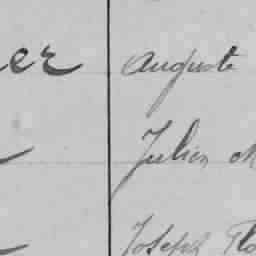 er Auguste
Julien M
Joseph Flo